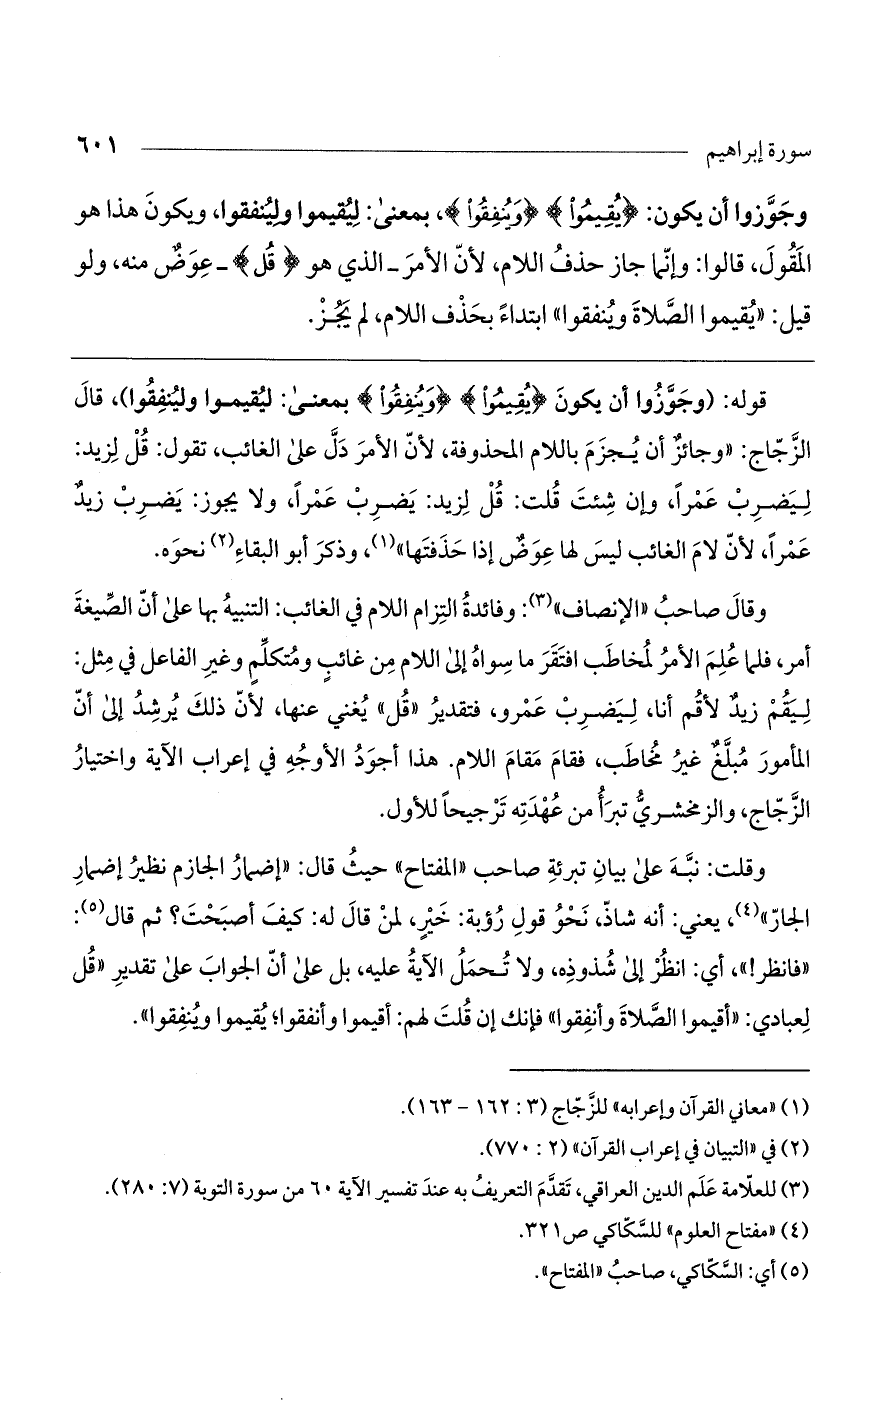 سورة إبراهيم ٦٠١
وجَوَّزوا أن يكون: ﴿يُقِيمُواْ﴾ ﴿وَيُنفِقُواْ﴾، بمعنىٰ: لِيُقيموا ولِيُنفقوا، ويكونَ هذا هو
المَقُولَ، قالوا: وإنّما جاز حذفُ اللام، لأنّ الأمرَ ـ الذي هو ﴿قُل﴾ ـ عِوَضٌ منه، ولو
قيل: «يُقيموا الصَّلاةَ ويُنفقوا» ابتداءً بحَذْف اللام، لم يَجُزْ.
قوله: (وجَوَّزُوا أن يكونَ ﴿يُقِيمُواْ﴾ ﴿وَيُنفِقُواْ﴾ بمعنىٰ: ليُقيمـوا وليُنفِقُوا)، قالَ
الزَّجّاج: «وجائزٌ أن يُـجزَمَ باللام المحذوفة، لأنّ الأمرَ دَلَّ علىٰ الغائب، تقول: قُلْ لِزيد:
لِيَضـرِبْ عَمْراً، وإن شِئتَ قُلت: قُلْ لِزيد: يَضـرِبْ عَمْراً، ولا يجوز: يَضـرِبْ زيدٌ
عَمْراً، لأنّ لامَ الغائب ليسَ لها عِوَضٌ إذا حَذَفتَها»(١)، وذكرَ أبو البقاءِ(٢) نحوَه.
وقالَ صاحبُ «الإنصاف»(٣): وفائدةُ التِزام اللام في الغائب: التنبيهُ بها علىٰ أنّ الصِّيغةَ
أمر، فلما عُلِمَ الأمرُ لمُخاطَب افتَقَرَ ما سِواهُ إلىٰ اللام مِن غائبٍ ومُتكلِّمٍ وغيرِ الفاعل في مِثل:
لِيَقُمْ زيدٌ لأقُم أنا، لِيَضـرِبْ عَمْرو، فتقديرُ «قُل» يُغني عنها، لأنّ ذلكَ يُرشِدُ إلىٰ أنّ
المأمورَ مُبلَّغٌ غيرُ مُخاطَب، فقامَ مَقامَ اللام. هذا أجوَدُ الأوجُهِ في إعراب الآية واختيارُ
الزَّجّاج، والزمخشـريُّ تبرَأُ من عُهْدَتِه تَرْجيحاً للأول.
وقلت: نبَّهَ علىٰ بيانِ تبرئةِ صاحب «المفتاح» حيثُ قال: «إضمارُ الجازم نظيرُ إضمارِ
الجارّ»(٤)، يعني: أنه شاذّ، نَحْوُ قولِ رُؤبة: خَيْرٍ، لمنْ قالَ له: كيفَ أصبَحْتَ؟ ثم قال(٥):
«فانظر!»، أي: انظُرْ إلىٰ شُذوذِه، ولا تُـحمَلُ الآيةُ عليه، بل علىٰ أنّ الجوابَ علىٰ تقديرِ «قُل
لِعبادي: «أقيموا الصَّلاةَ وأنفِقوا» فإنك إن قُلتَ لهم: أقيموا وأنفقوا؛ يُقيموا ويُنفِقوا».
(١) «معاني القرآن وإعرابه» للزَّجّاج (٣: ١٦٢ - ١٦٣).
(٢) في «التبيان في إعراب القرآن» (٢: ٧٧٠).
(٣) للعلّامة عَلَم الدين العراقي، تَقدَّمَ التعريفُ به عندَ تفسير الآية ٦٠ من سورة التوبة (٧: ٢٨٠).
(٤) «مفتاح العلوم» للسَّكّاكي ص٣٢١.
(٥) أي: السَّكّاكي، صاحبُ «المفتاح».